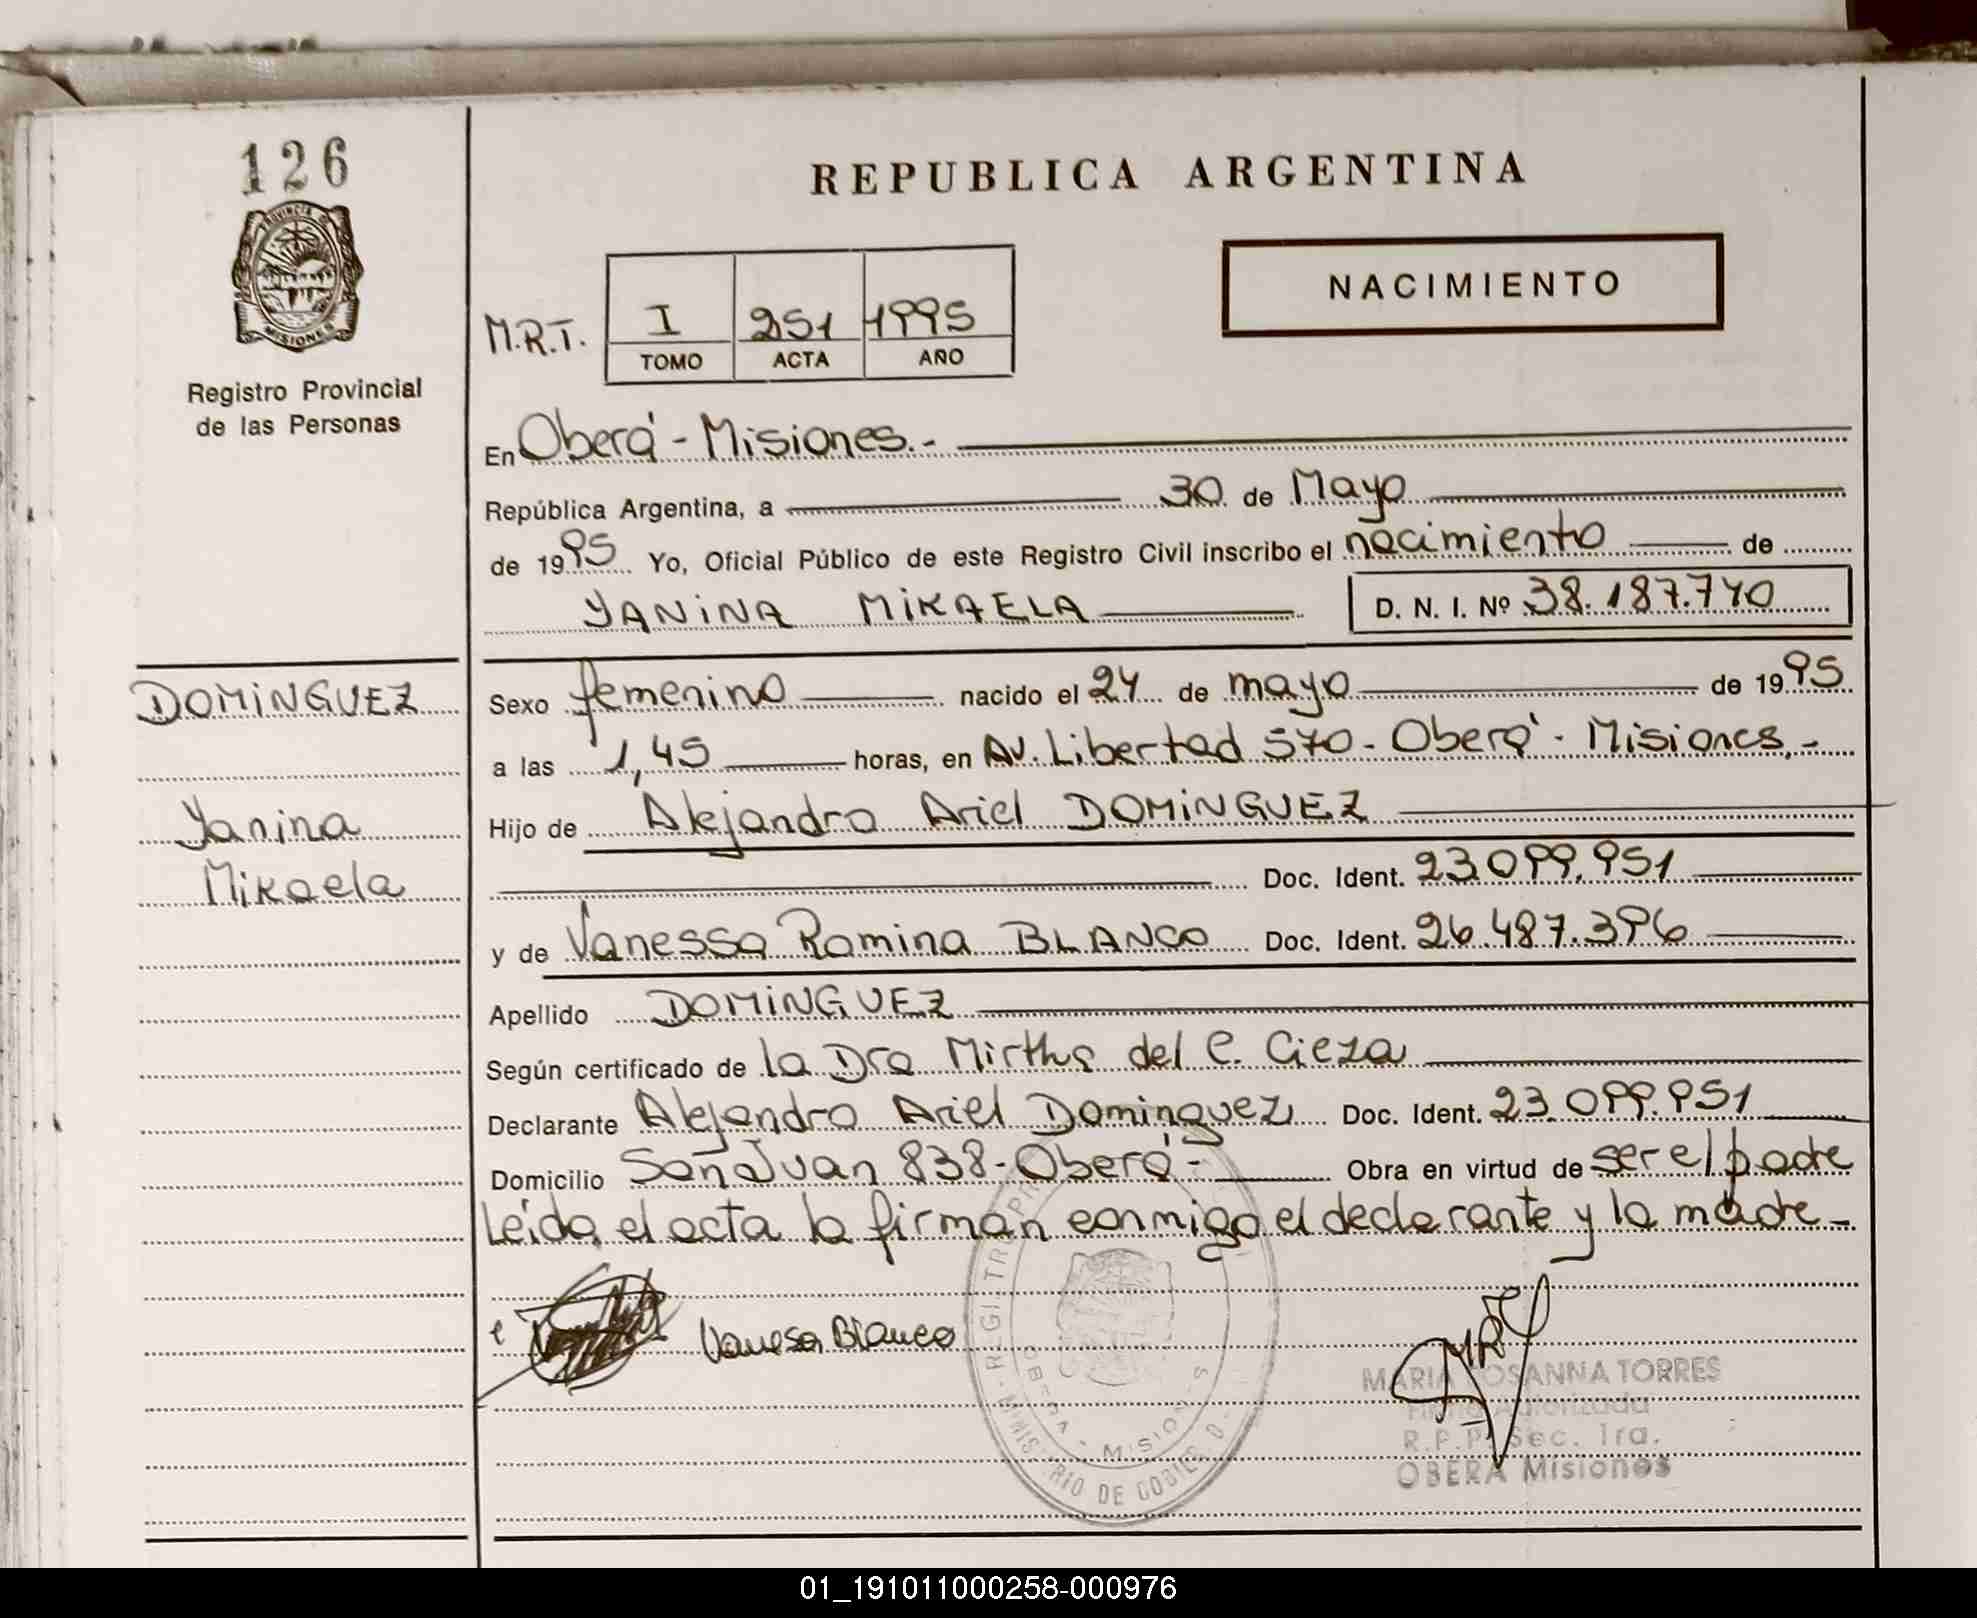 126
PROVINCIA DE
MISIONES
Registro Provincial
de las Personas
REPUBLICA ARGENTINA
NACIMIENTO
M.R.T. I 251 1995
TOMO ACTA AÑO
En Oberá - Misiones.-
República Argentina, a 30 de Mayo
de 1995 Yo, Oficial Público de este Registro Civil inscribo el nacimiento de
YANINA MIKAELA D. N. I. Nº 38.187.740
DOMINGUEZ
Yanina
Mikaela
Sexo femenino nacido el 24 de mayo de 1995
a las 1,45 horas, en Av. Libertad 570 - Oberá - Misiones.-
Hijo de Alejandro Ariel DOMINGUEZ
Doc. Ident. 23.099.951
y de Vanessa Romina BLANCO Doc. Ident. 26.487.396
Apellido DOMINGUEZ
Según certificado de la Dra Mirtha del C. Cieza
Declarante Alejandro Ariel Dominguez Doc. Ident. 23.099.951
Domicilio San Juan 838 - Oberá - Obra en virtud de ser el padre
Leída el acta la firman conmigo el declarante y la madre -
Vanesa Blanco
REGISTRO
OBERA - MISIONES
MINISTERIO DE GOBIERNO
MARIA ROSANNA TORRES
Firma Autorizada
R.P.P. Sec. 1ra.
OBERA Misiones
01_191011000258-000976